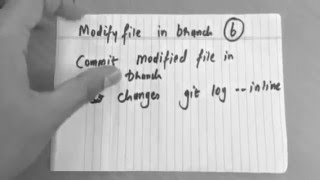 Modify file in branch 6
Commit modified file in
branch
changes git log --inline